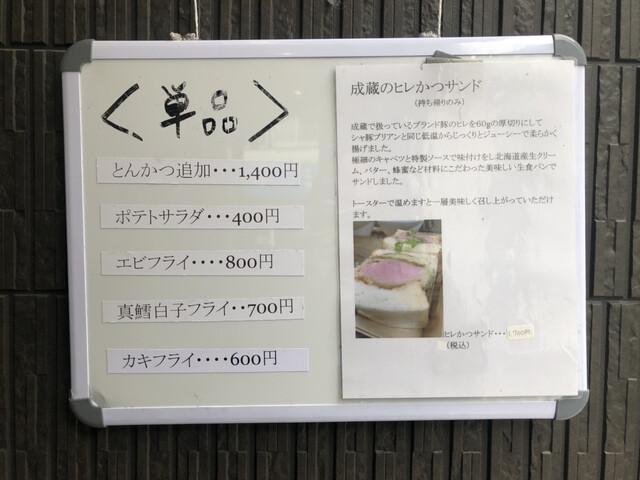 <単品>
とんかつ追加・・・1,400円
ポテトサラダ・・・400円
エビフライ・・・・800円
真鱈白子フライ・・700円
カキフライ・・・・600円
成蔵のヒレかつサンド
(持ち帰りのみ)
成蔵で扱っているブランド豚のヒレを60gの厚切りにして
シャ豚ブリアンと同じ低温からじっくりとジューシーで柔らかく
揚げました。
極細のキャベツと特製ソースで味付けをし北海道産生クリー
ム、バター、蜂蜜など材料にこだわった美味しい生食パンで
サンドしました。
トースターで温めますと一層美味しく召し上がっていただけ
ます。
ヒレかつサンド・・・1,700円
(税込)